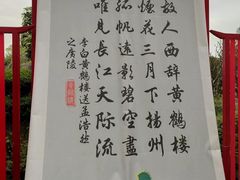 故人西辞黄鹤楼
烟花三月下扬州
孤帆远影碧空尽
唯见长江天际流
李白黄鹤楼送孟浩然
之广陵